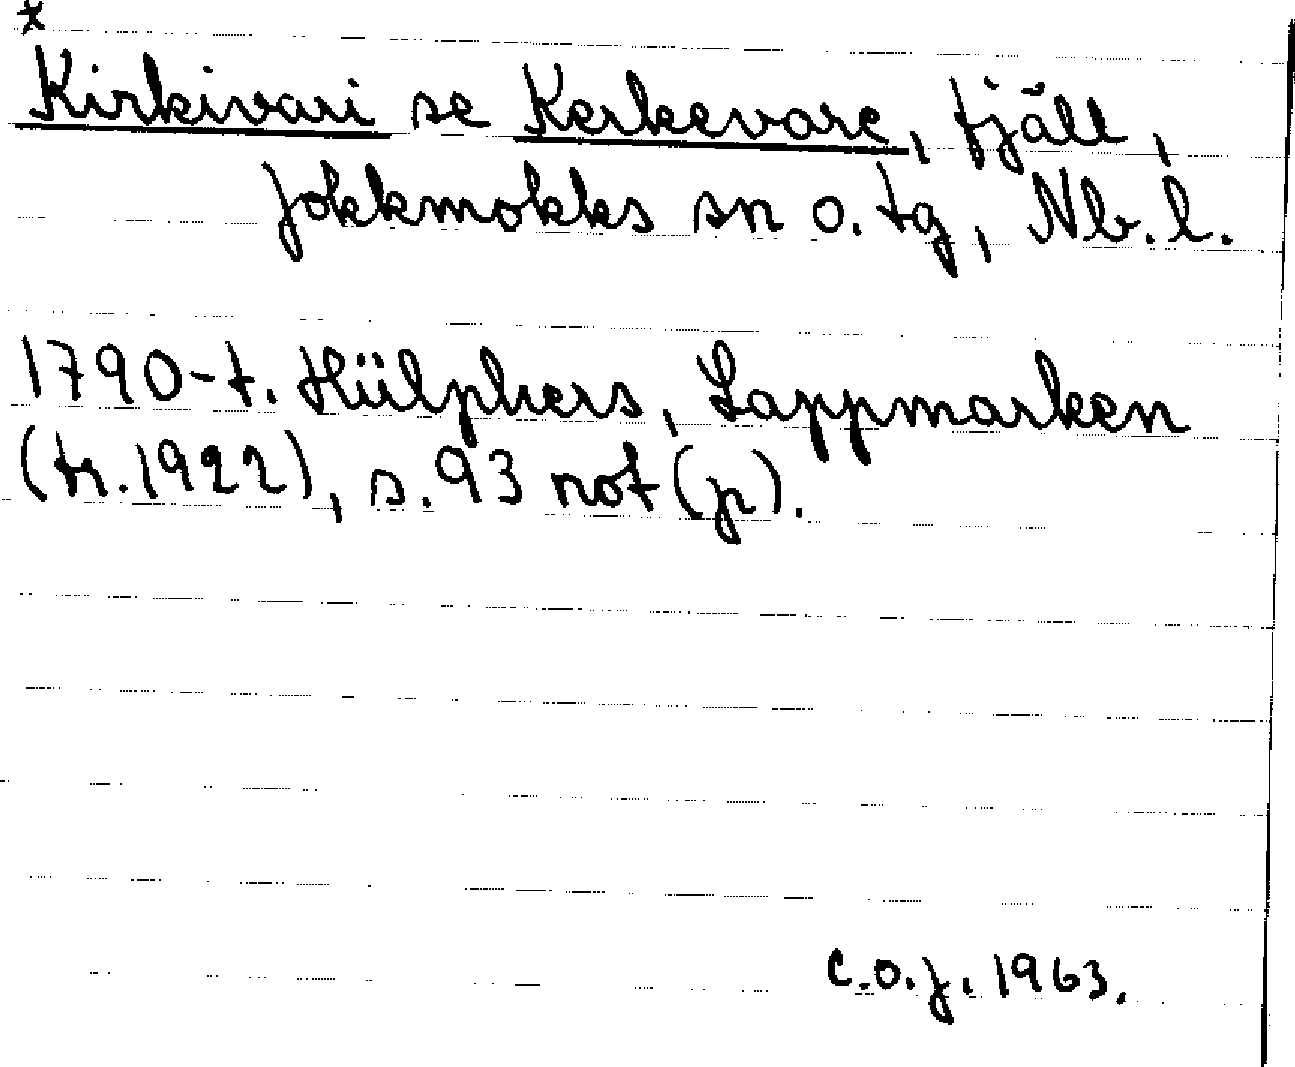 *
Kirkivari se Kerkevare, fjäll,
Jokkmokks sn o. tg, Nb. l.
1790-t. Hülphers, Lappmarken
(tr. 1922), s. 93 not (jr).
C.O.J. 1963.